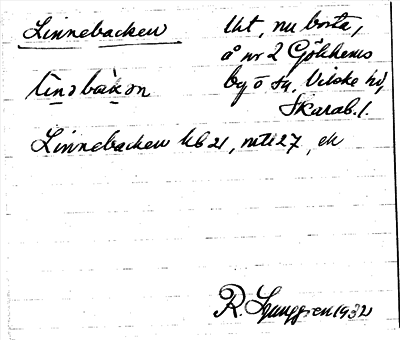 Linnebacken
lht, nu borta,
å nr 2 Gökhems
by o sn, Vilske hd,
Skarab. l.
linəbakən
Linnebacken hb 21, mtl 27, ek
R. Ljunggren 1932